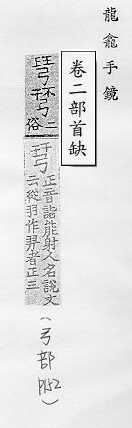 龍龕手鏡
卷二部首缺
二俗
正音詣能射人名說文
云從羽作羿者正三
(弓部 P152)